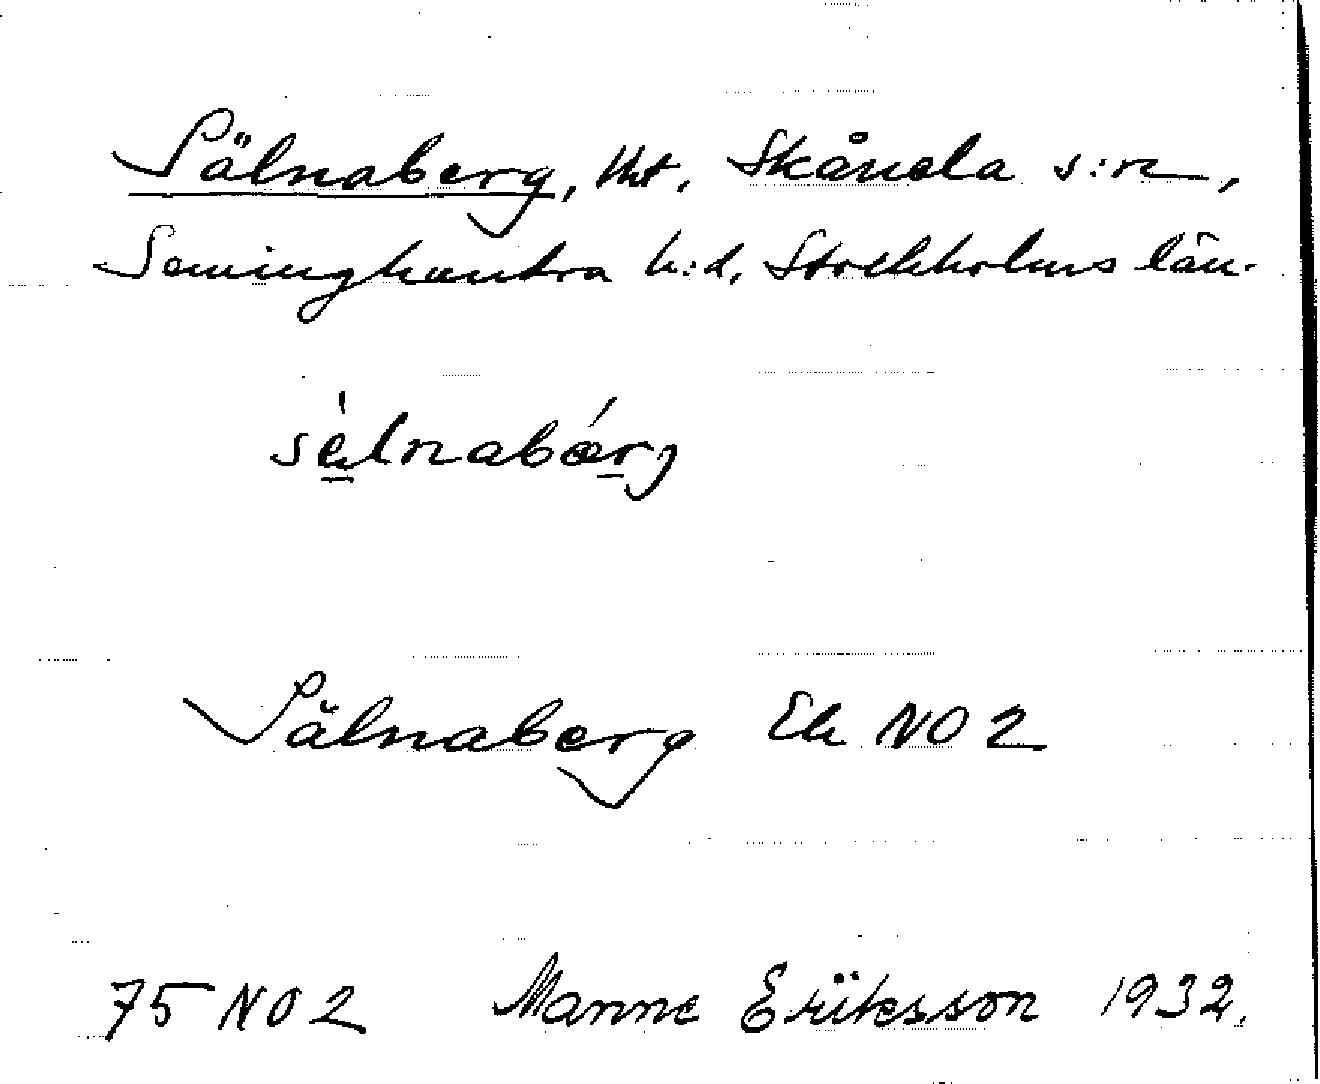 Sälnaberg, tht, Skånela s:n,
Seminghundra h:d, Stockholms län.
sèlnabǽrj
Sälnaberg Ek NO 2
75 NO 2 Manne Eriksson 1932.